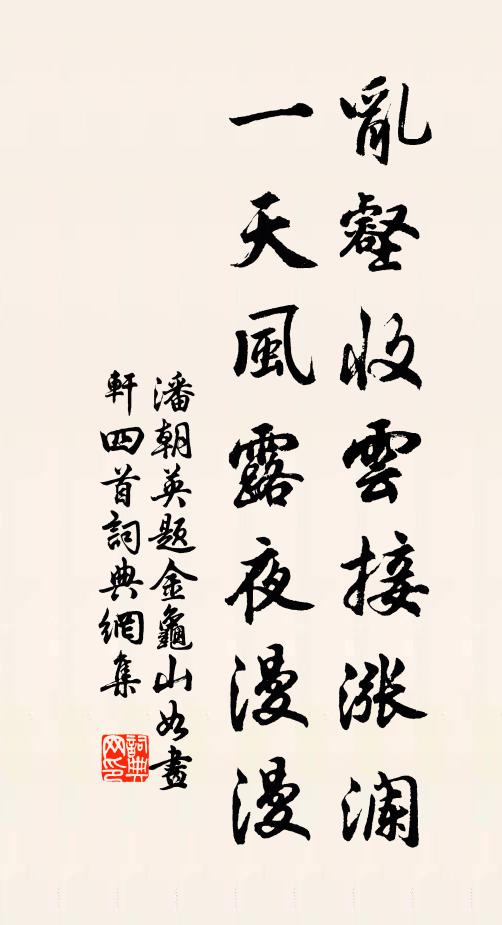 亂壑收雲接漲瀾
一天風露夜漫漫
潘朝英題金龜山如畫
軒四首詞典網集
詞典
网印